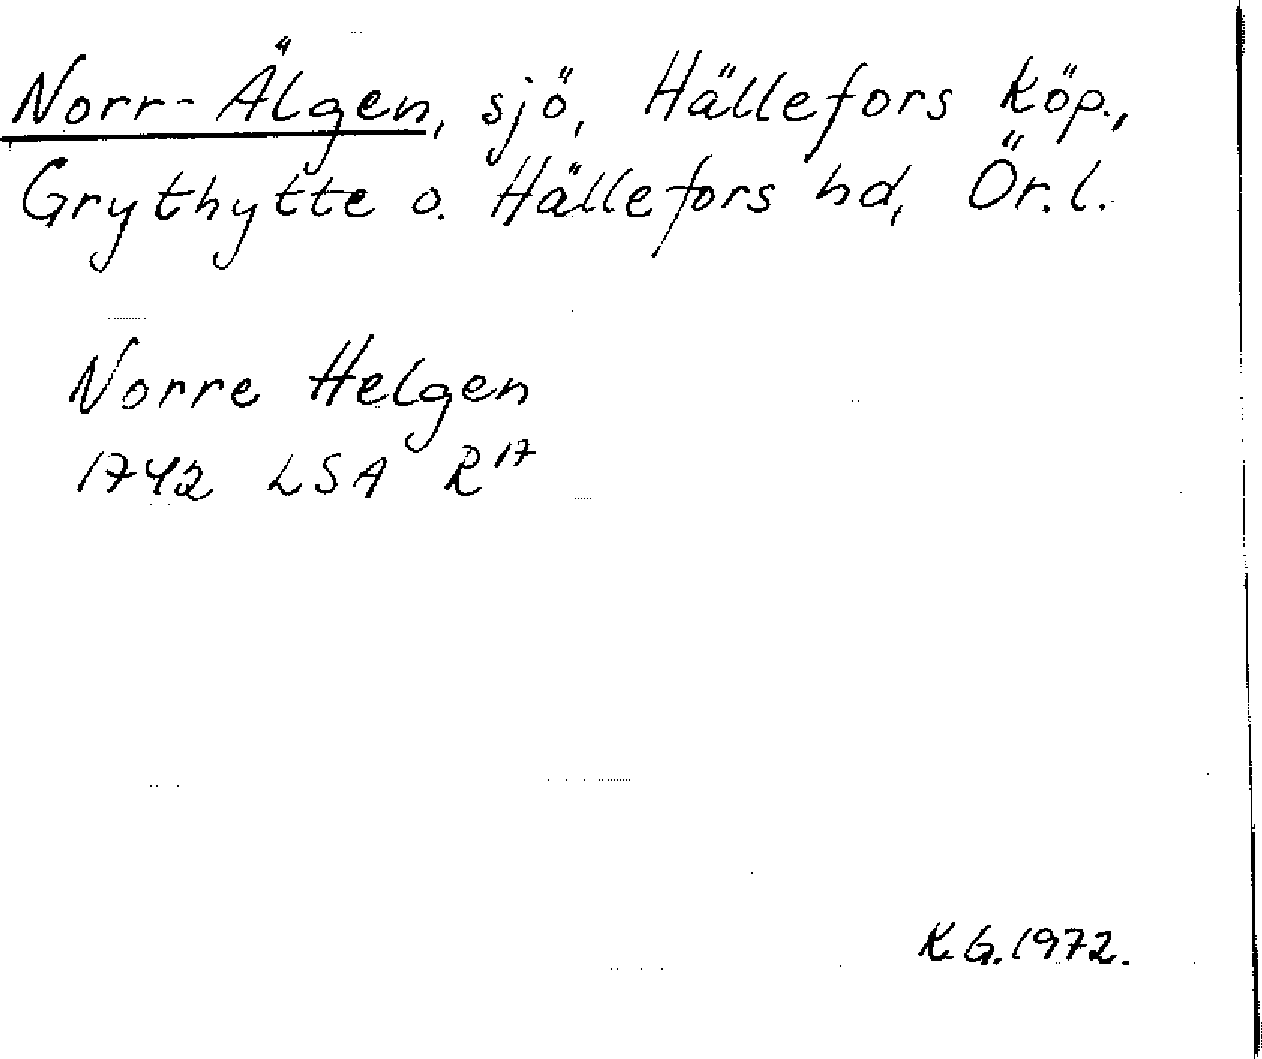 Norr-Älgen, sjö, Hällefors köp.,
Grythytte o. Hällefors hd, Ör. l.
Norre Helgen
1742 LSA R17
K.G. 1972.